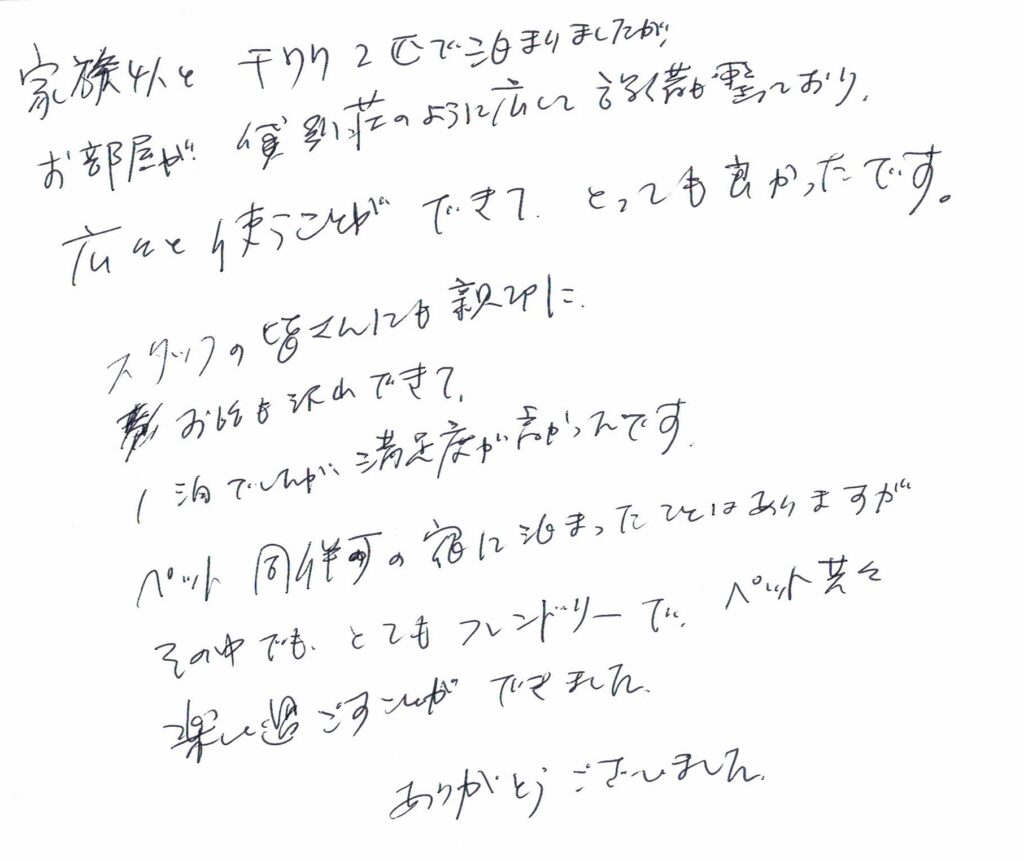 家族4人と チワワ2匹で泊まりましたが、
お部屋が 貸別荘のように広くて 設備も整っており、
広々と使うことができて、とっても良かったです。
スタッフの皆さんにも親切に、
お話も沢山できて、
1泊でしたが、満足度が高かったです。
ペット同伴可の宿に泊まったことはありますが
その中でも、とてもフレンドリーで、ペット共々
楽しく過ごすことができました。
ありがとうございました。